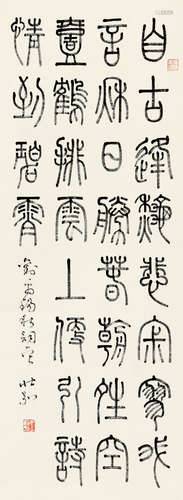 自古逢秋悲寂寥我
言秋日勝春朝晴空
壹鶴排雲上便引詩
情到碧霄
劉禹錫秋詞